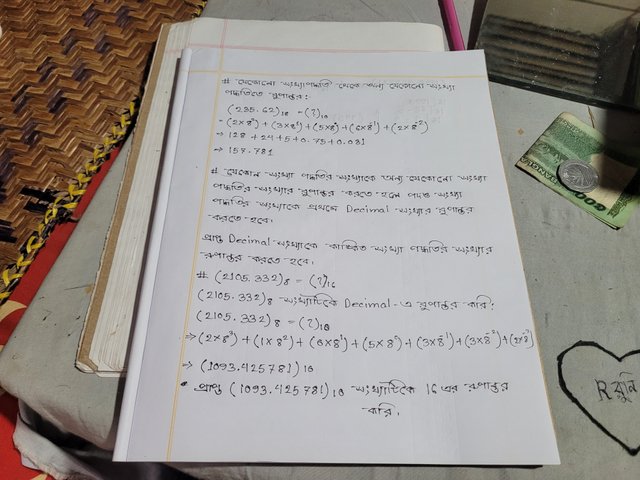 # যেকোনো সংখ্যাপদ্ধতি থেকে অন্য যেকোনো সংখ্যা
পদ্ধতিতে রুপান্তর:
(235.62)₁₀ = (?)₁₀
= (2×8²) + (3×8¹) + (5×8⁰) + (6×8⁻¹) + (2×8⁻²)
⇒ 128 + 24 + 5 + 0.75 + 0.031
⇒ 157.781
# যেকোন সংখ্যা পদ্ধতির সংখ্যাকে অন্য যেকোনো সংখ্যা
পদ্ধতির সংখ্যার রুপান্তর করতে হলে সংখ্যা
পদ্ধতির সংখ্যাকে প্রথমে Decimal সংখ্যার রুপান্তর
করতে হবে।
প্রাপ্ত Decimal সংখ্যাকে কাঙ্ক্ষিত সংখ্যা পদ্ধতির সংখ্যার
রুপান্তর করতে হবে।
# (2105.332)₈ = (?)₁₆
(2105.332)₈ সংখ্যাটিকে Decimal-এ রুপান্তর করি:
(2105.332)₈ = (?)₁₀
⇒ (2×8³) + (1×8²) + (0×8¹) + (5×8⁰) + (3×8⁻¹) + (3×8⁻²) + (2×8⁻³)
⇒ (1093.425781)₁₀
• প্রাপ্ত (1093.425781)₁₀ সংখ্যাটিকে 16 এর রুপান্তর
করি।
600
R রুনি